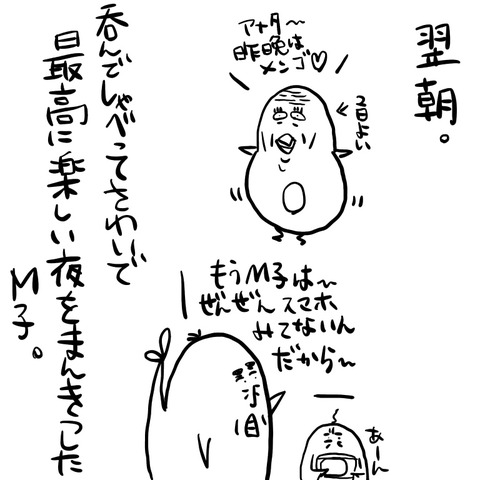 翌朝。
アナタ〜
昨晩は
メンゴ♡
2日よい
呑んでしゃべってさわいで
最高に楽しい夜をまんきつした
M子。
もうM子は〜
ぜんぜんスマホ
みてないん
だから〜
あーん